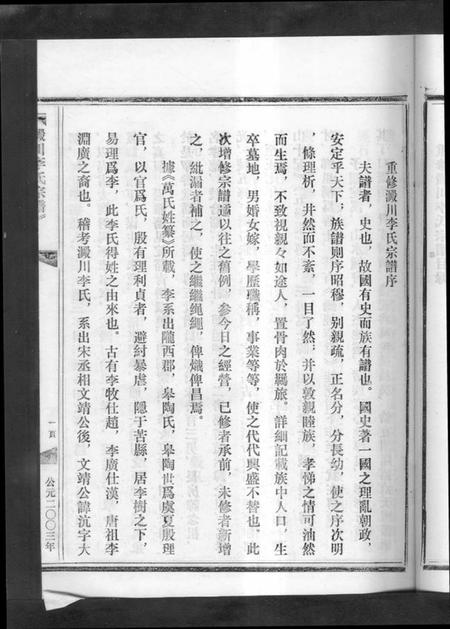 重修澱川李氏宗譜序
夫譜者，史也，故國有史而族有譜也。國史著一國之理亂朝政，
安定乎天下，族譜則序昭穆，別親疏，正名分，分長幼，使之序次明
，條理析，井然而不紊，一目了然，并以敦親睦族，孝悌之情可油然
而生焉，不致視親々如途人，置骨肉於羈旅。詳細記載族中人口，生
卒墓地，男婚女嫁，學歷職稱，事業等等，使之代代興盛不替也。此
次增修宗譜遵以往之舊例，參今日之經營，已修者承前，未修者新增
之，紕漏者補之，使之繼繼繩繩，俾熾俾昌焉。
據《萬氏姓纂》所載，李系出隴西郡，皋陶氏，皋陶世爲虞夏殷理
官，以官爲氏，殷有理利貞者，避紂暴虐，隱于苦縣，居李樹之下，
易理爲李，此李氏得姓之由來也。古有李牧仕趙，李廣仕漢，唐祖李
淵廣之裔也。稽考澱川李氏，系出宋丞相文靖公後，文靖公諱沆字太
澱川李氏宗譜
一頁
公元二〇〇三年